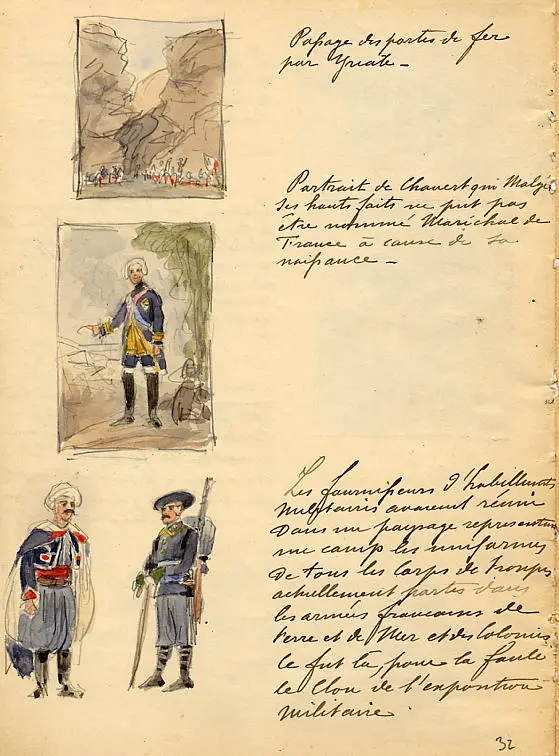 Passage des portes de fer
par
Portrait de Chevert qui Malgré
ses hauts faits ne put pas
être nommé Maréchal de
France à cause de sa
naissance –
Les fournisseurs d'habillements
Militaires avaient réuni
Dans un paysage représentant
un camp les uniformes
de tous les Corps de troupes
actuellement portés dans
les armées françaises de
terre et de Mer et des Colonies
Ce fut là, pour la foule
le Clou de l'exposition
militaire.
32